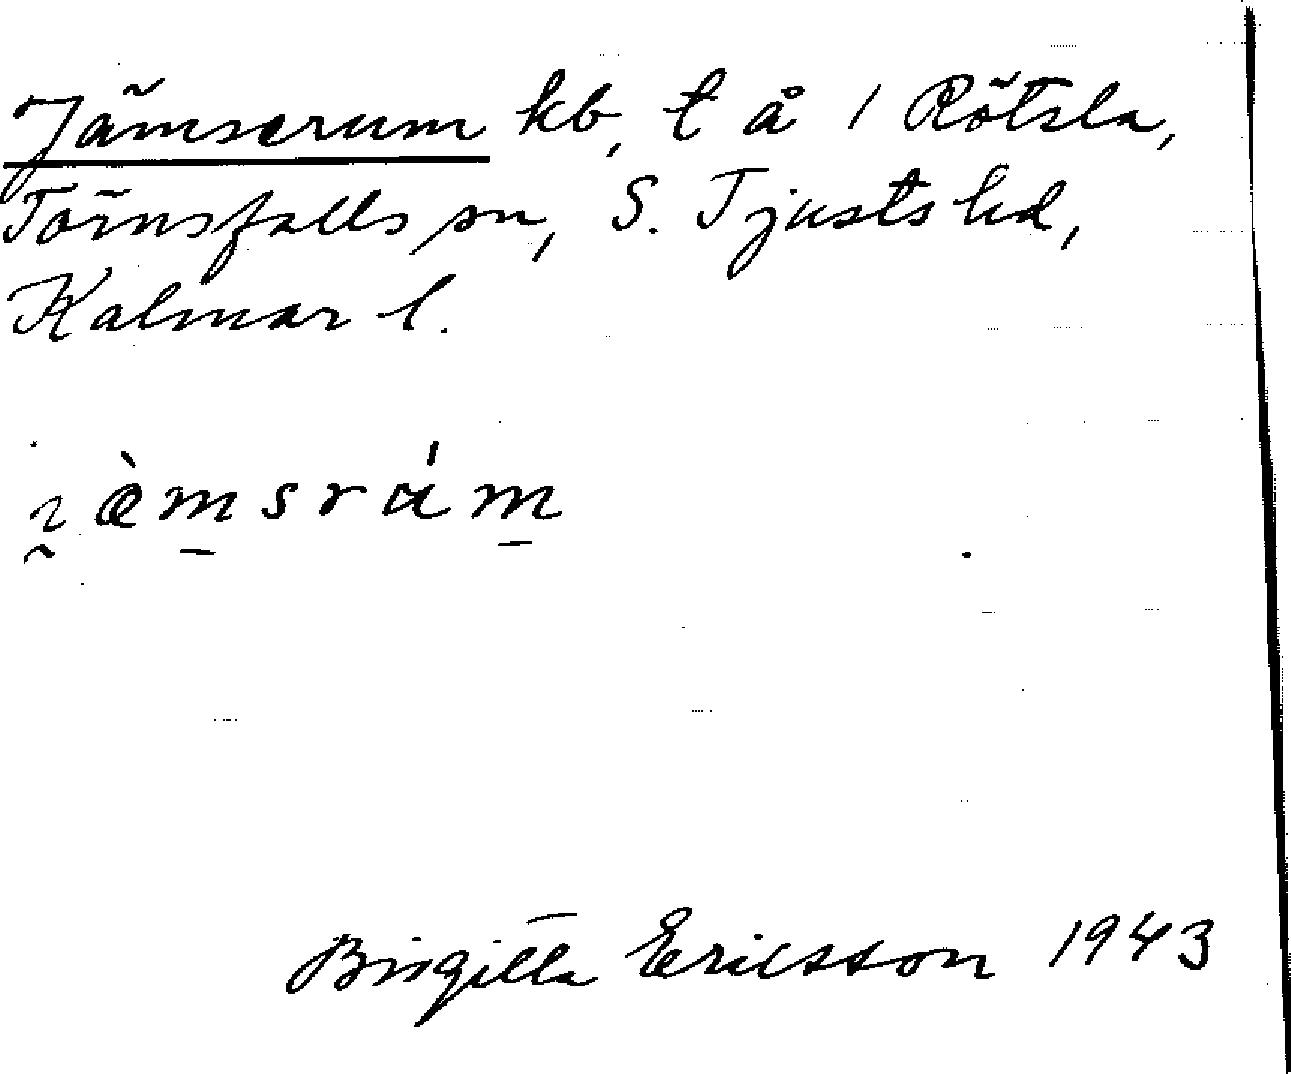 Jämserum kb, t å 1 Rötsla,
Törnsfalls sn, S. Tjusts hd,
Kalmar l.
Birgitta Ericsson 1943